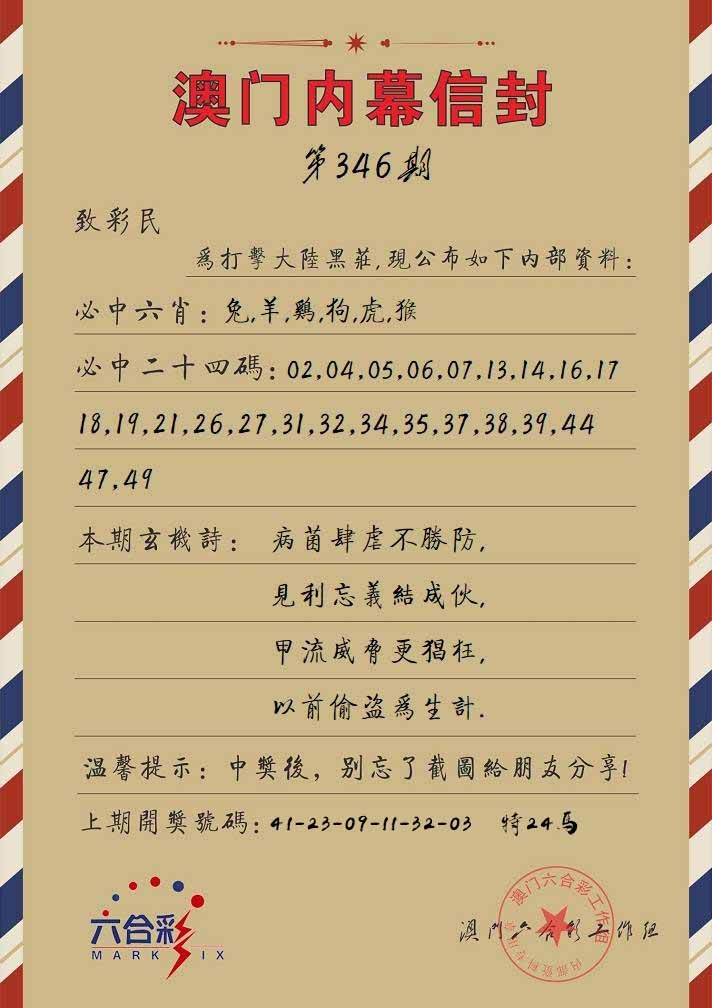 澳门内幕信封
第346期
致彩民
為打擊大陸黑莊,現公布如下内部資料:
必中六肖:兔,羊,鷄,狗,虎,猴
必中二十四碼:02,04,05,06,07,13,14,16,17
18,19,21,26,27,31,32,34,35,37,38,39,44
47,49
本期玄機詩: 病菌肆虐不勝防,
見利忘義結成伙,
甲流威脅更猖狂,
以前偷盗為生計.
温馨提示:中獎後,别忘了截圖給朋友分享!
上期開獎號碼:41-23-09-11-32-03 特24馬
六合彩
MARK SIX
澳门六合彩工作组
澳门六合彩工作组
内部资料专用章